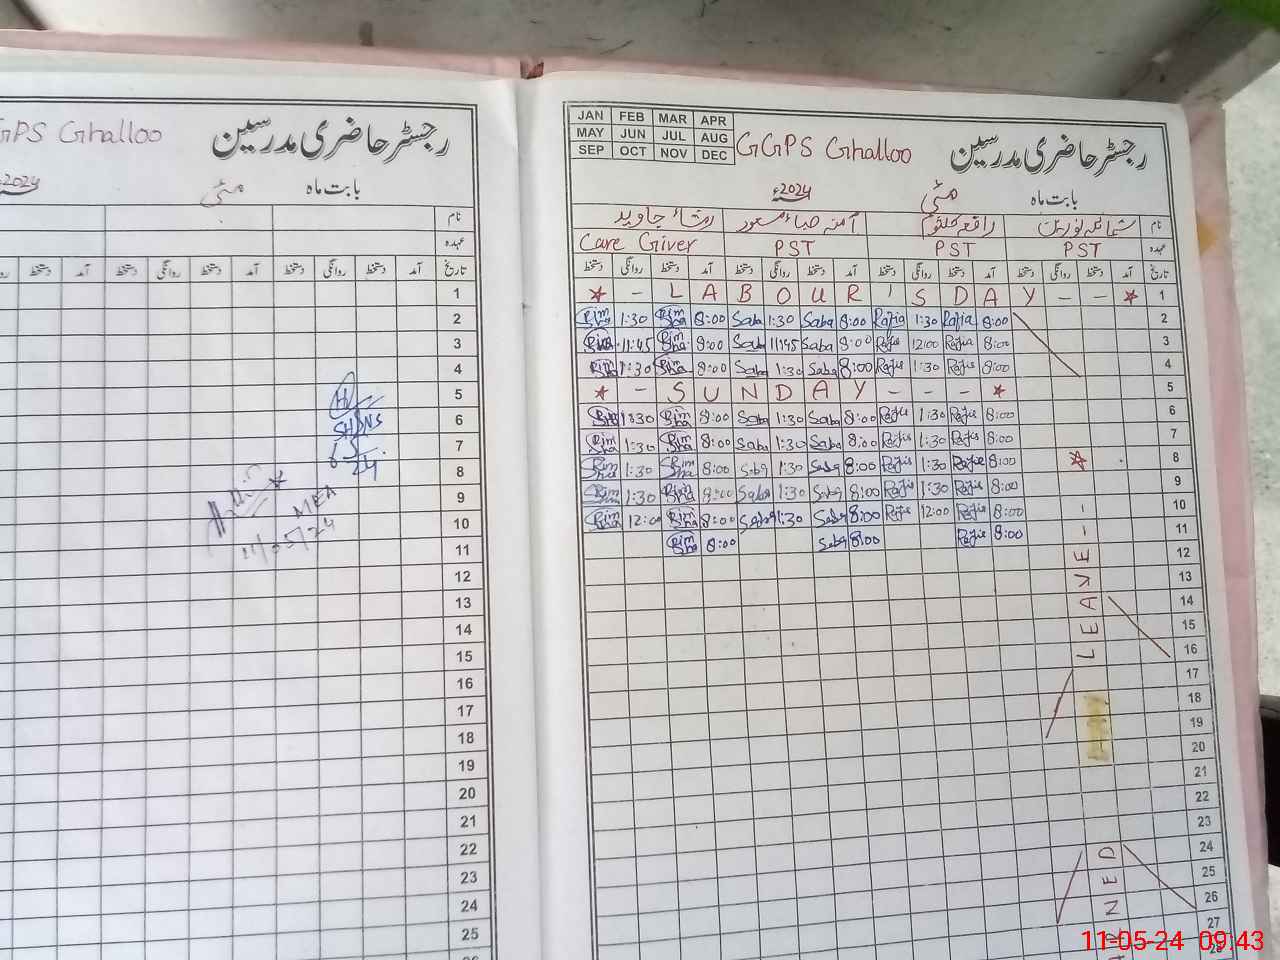 GPS Ghalloo رجسٹر حاضری مدرسین
بابت ماہ مئی 2024ء
نام
عہدہ
تاریخ آمد دستخط روانگی دستخط آمد دستخط روانگی دستخط آمد
1
2
3
4
5
6
7
8
9
10
11
12
13
14
15
16
17
18
19
20
21
22
23
24
25
SHNS
24
MEA
11/05/24
JAN FEB MAR APR
MAY JUN JUL AUG
SEP OCT NOV DEC
GGPS Ghalloo رجسٹر حاضری مدرسین
بابت ماہ مئی 2024ء
نام شمائلہ نورین رافعہ کلثوم آمنہ صباء مسعود رمشاء جاوید
عہدہ PST PST PST Care Giver
تاریخ آمد دستخط روانگی دستخط آمد دستخط روانگی دستخط آمد دستخط روانگی دستخط آمد دستخط روانگی دستخط
- L A B O U R ' S D A Y - - 1
Rimsha 1:30 Rimsha 8:00 Saba 1:30 Saba 8:00 Rafia 1:30 Rafia 8:00 2
Rimsha 11:45 Rimsha 8:00 Saba 11:45 Saba 8:00 Rafia 12:00 Rafia 8:00 3
Rimsha 1:30 Rimsha 8:00 Saba 1:30 Saba 8:00 Rafia 1:30 Rafia 8:00 4
- S U N D A Y - - - 5
Rimsha 1:30 Rimsha 8:00 Saba 1:30 Saba 8:00 Rafia 1:30 Rafia 8:00 6
Rimsha 1:30 Rimsha 8:00 Saba 1:30 Saba 8:00 Rafia 1:30 Rafia 8:00 7
Rimsha 1:30 Rimsha 8:00 Saba 1:30 Saba 8:00 Rafia 1:30 Rafia 8:00 8
Rimsha 1:30 Rimsha 8:00 Saba 1:30 Saba 8:00 Rafia 1:30 Rafia 8:00 9
Rimsha 12:00 Rimsha 8:00 Saba 1:30 Saba 8:00 Rafia 12:00 Rafia 8:00 10
Rimsha 8:00 Saba 8:00 Rafia 8:00 11
12
13
14
15
16
17
18
19
20
21
22
23
24
25
26
27
28
LEAVE - -
NED
11-05-24 09:43